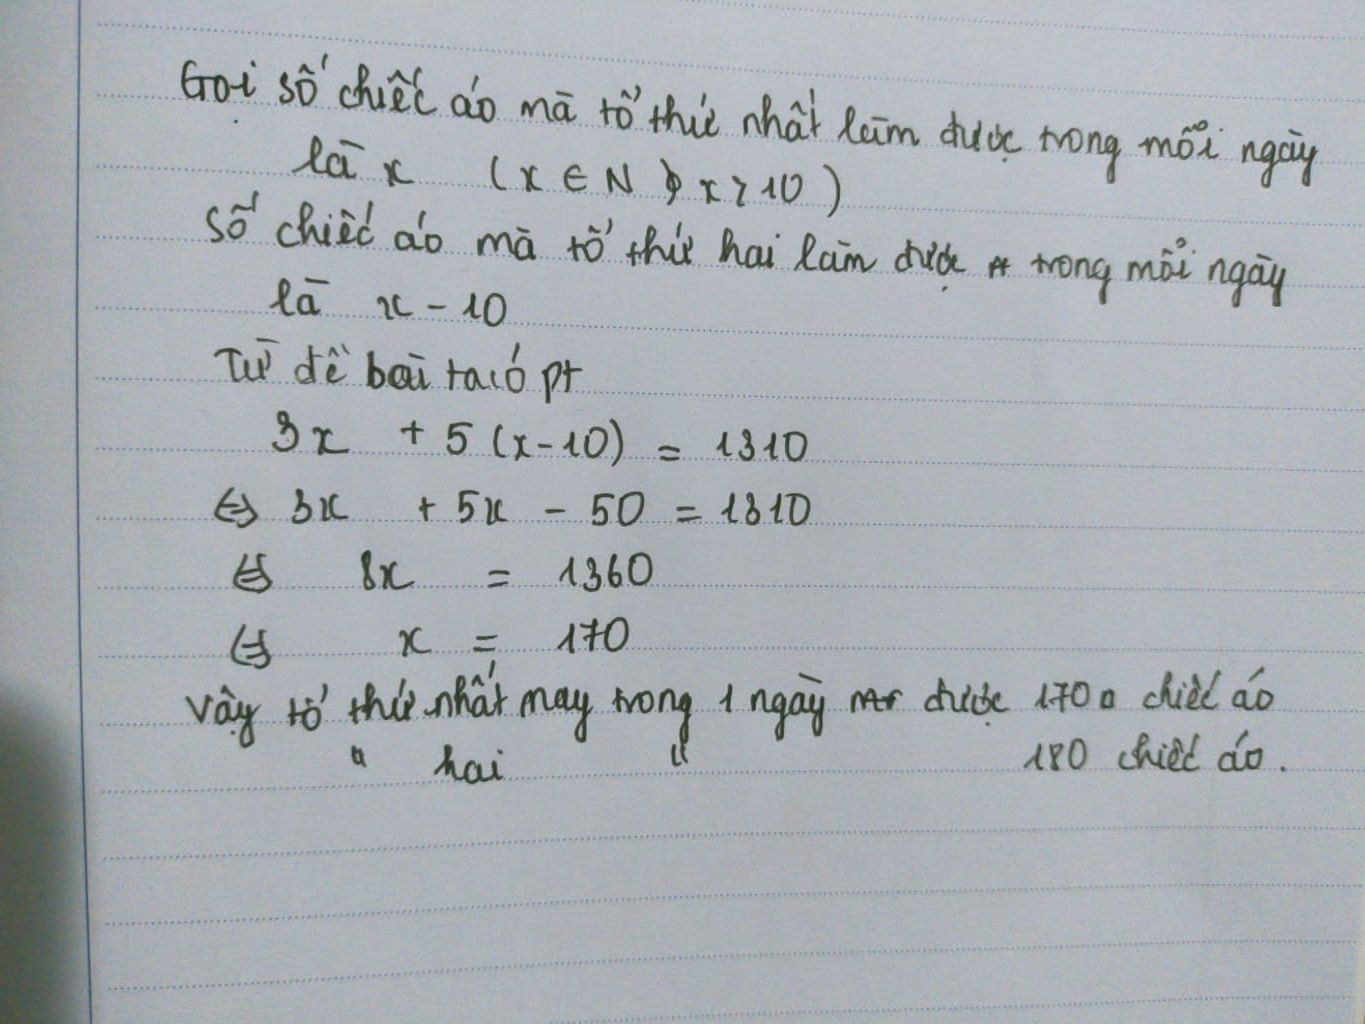 Gọi số chiếc áo mà tổ thứ nhất làm được trong mỗi ngày
là x (x ∈ N, x > 10)
Số chiếc áo mà tổ thứ hai làm được trong mỗi ngày
là x - 10
Từ đề bài ta có pt
3x + 5 (x-10) = 1310
⇔ 3x + 5x - 50 = 1310
⇔ 8x = 1360
⇔ x = 170
Vậy tổ thứ nhất may trong 1 ngày được 170 chiếc áo
" hai " 180 chiếc áo.